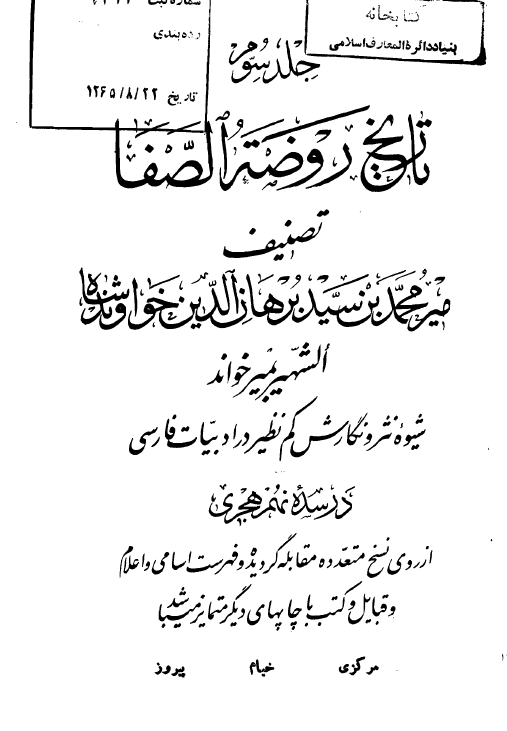 شماره ثبت
رده‌بندی
تاریخ ۱۳۶۵/۸/۲۲
کتابخانه
بنیاد دائرة المعارف اسلامی
جلد سوم
تاریخ روضة الصفا
تصنیف
میر محمد بن سید برهان الدین خواوند شاه
الشهیر بمیر خواند
شیوهٔ نثر و نگارش کم نظیر در ادبیات فارسی
در سدهٔ نهم هجری
از روی نسخ متعدده مقابله گردیده و فهرست اسامی و اعلام
و قبایل و کتب با چاپهای دیگر متمایز میباشد
مرکزی خیام پیروز